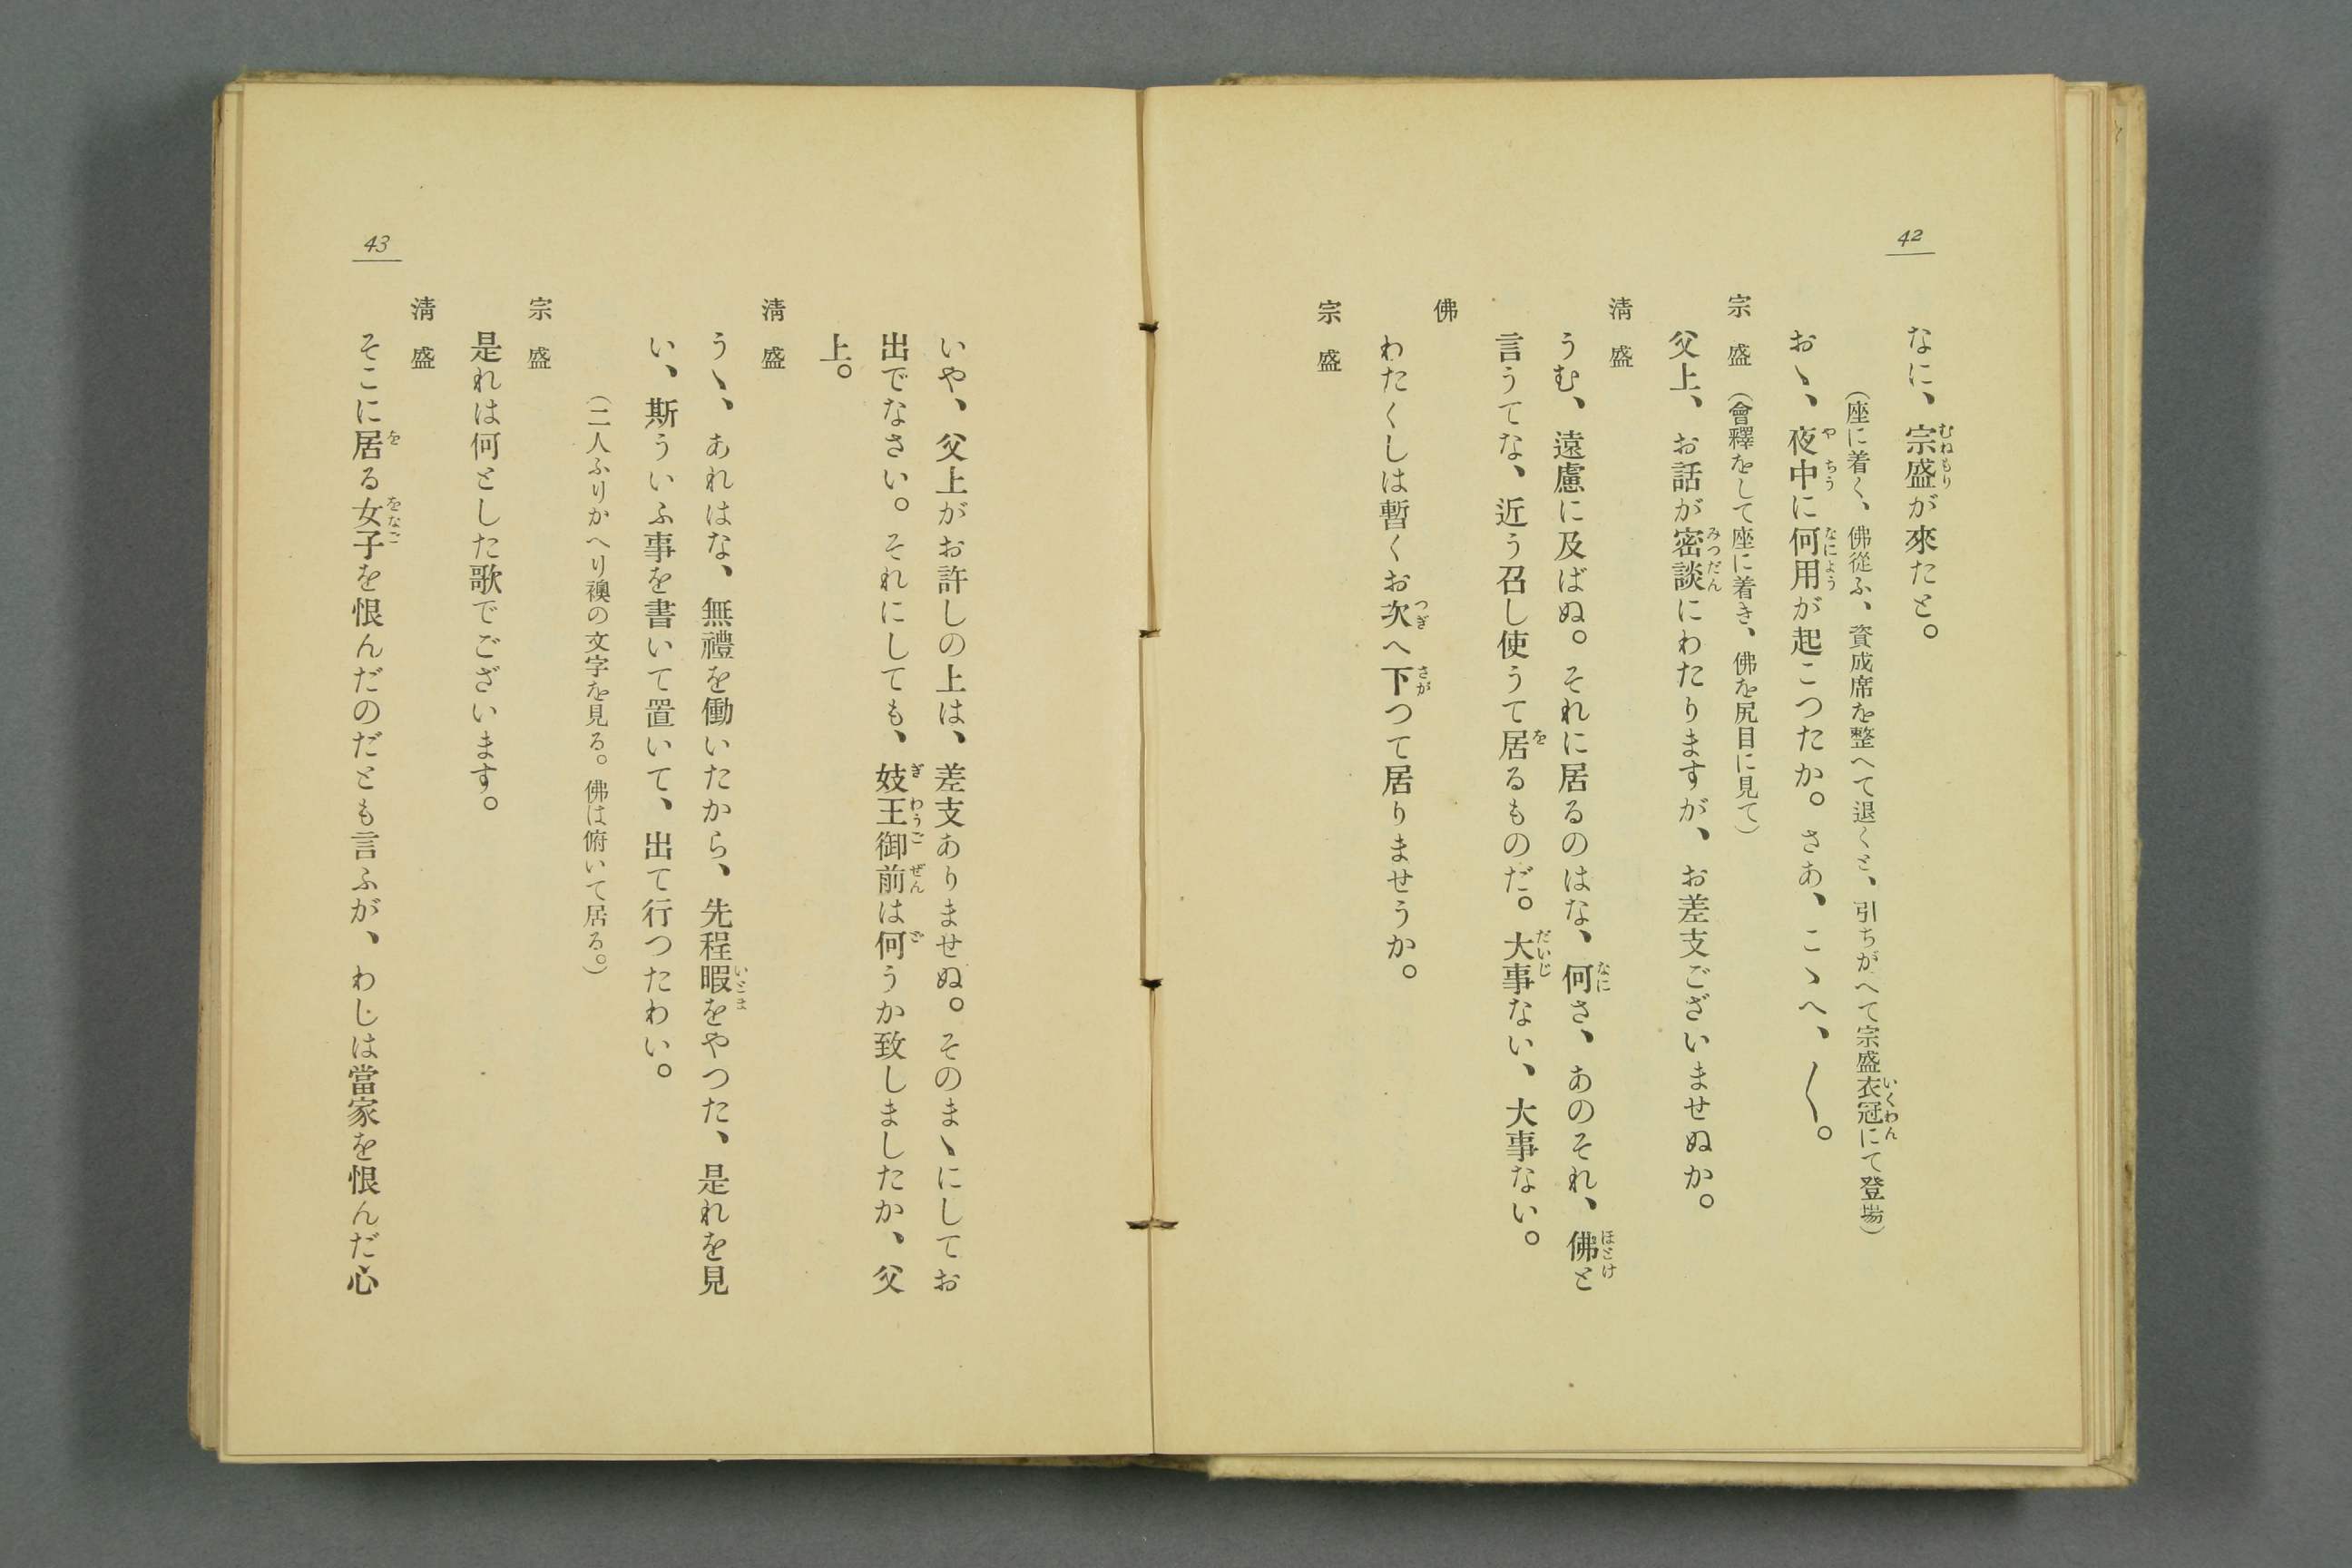 42
なに、宗盛が來たと。
（座に着く、佛從ふ、資成席を整へて退くと、引ちがへて宗盛衣冠にて登場）
おゝ、夜中に何用が起こつたか。さあ、こゝへ、〱。
宗盛（會釋をして座に着き、佛を尻目に見て）
父上、お話が密談にわたりますが、お差支ございませぬか。
淸盛
うむ、遠慮に及ばぬ。それに居るのはな、何さ、あのそれ、佛と
言うてな、近う召し使うて居るものだ。大事ない、大事ない。
佛
わたくしは暫くお次へ下つて居りませうか。
宗盛
いや、父上がお許しの上は、差支ありませぬ。そのまゝにしてお
出でなさい。それにしても、妓王御前は何うか致しましたか、父
上。
淸盛
うゝ、あれはな、無禮を働いたから、先程暇をやつた、是れを見
い、斯ういふ事を書いて置いて、出て行つたわい。
（二人ふりかへり襖の文字を見る。佛は俯いて居る。）
宗盛
是れは何とした歌でございます。
淸盛
そこに居る女子を恨んだのだとも言ふが、わしは當家を恨んだ心
43